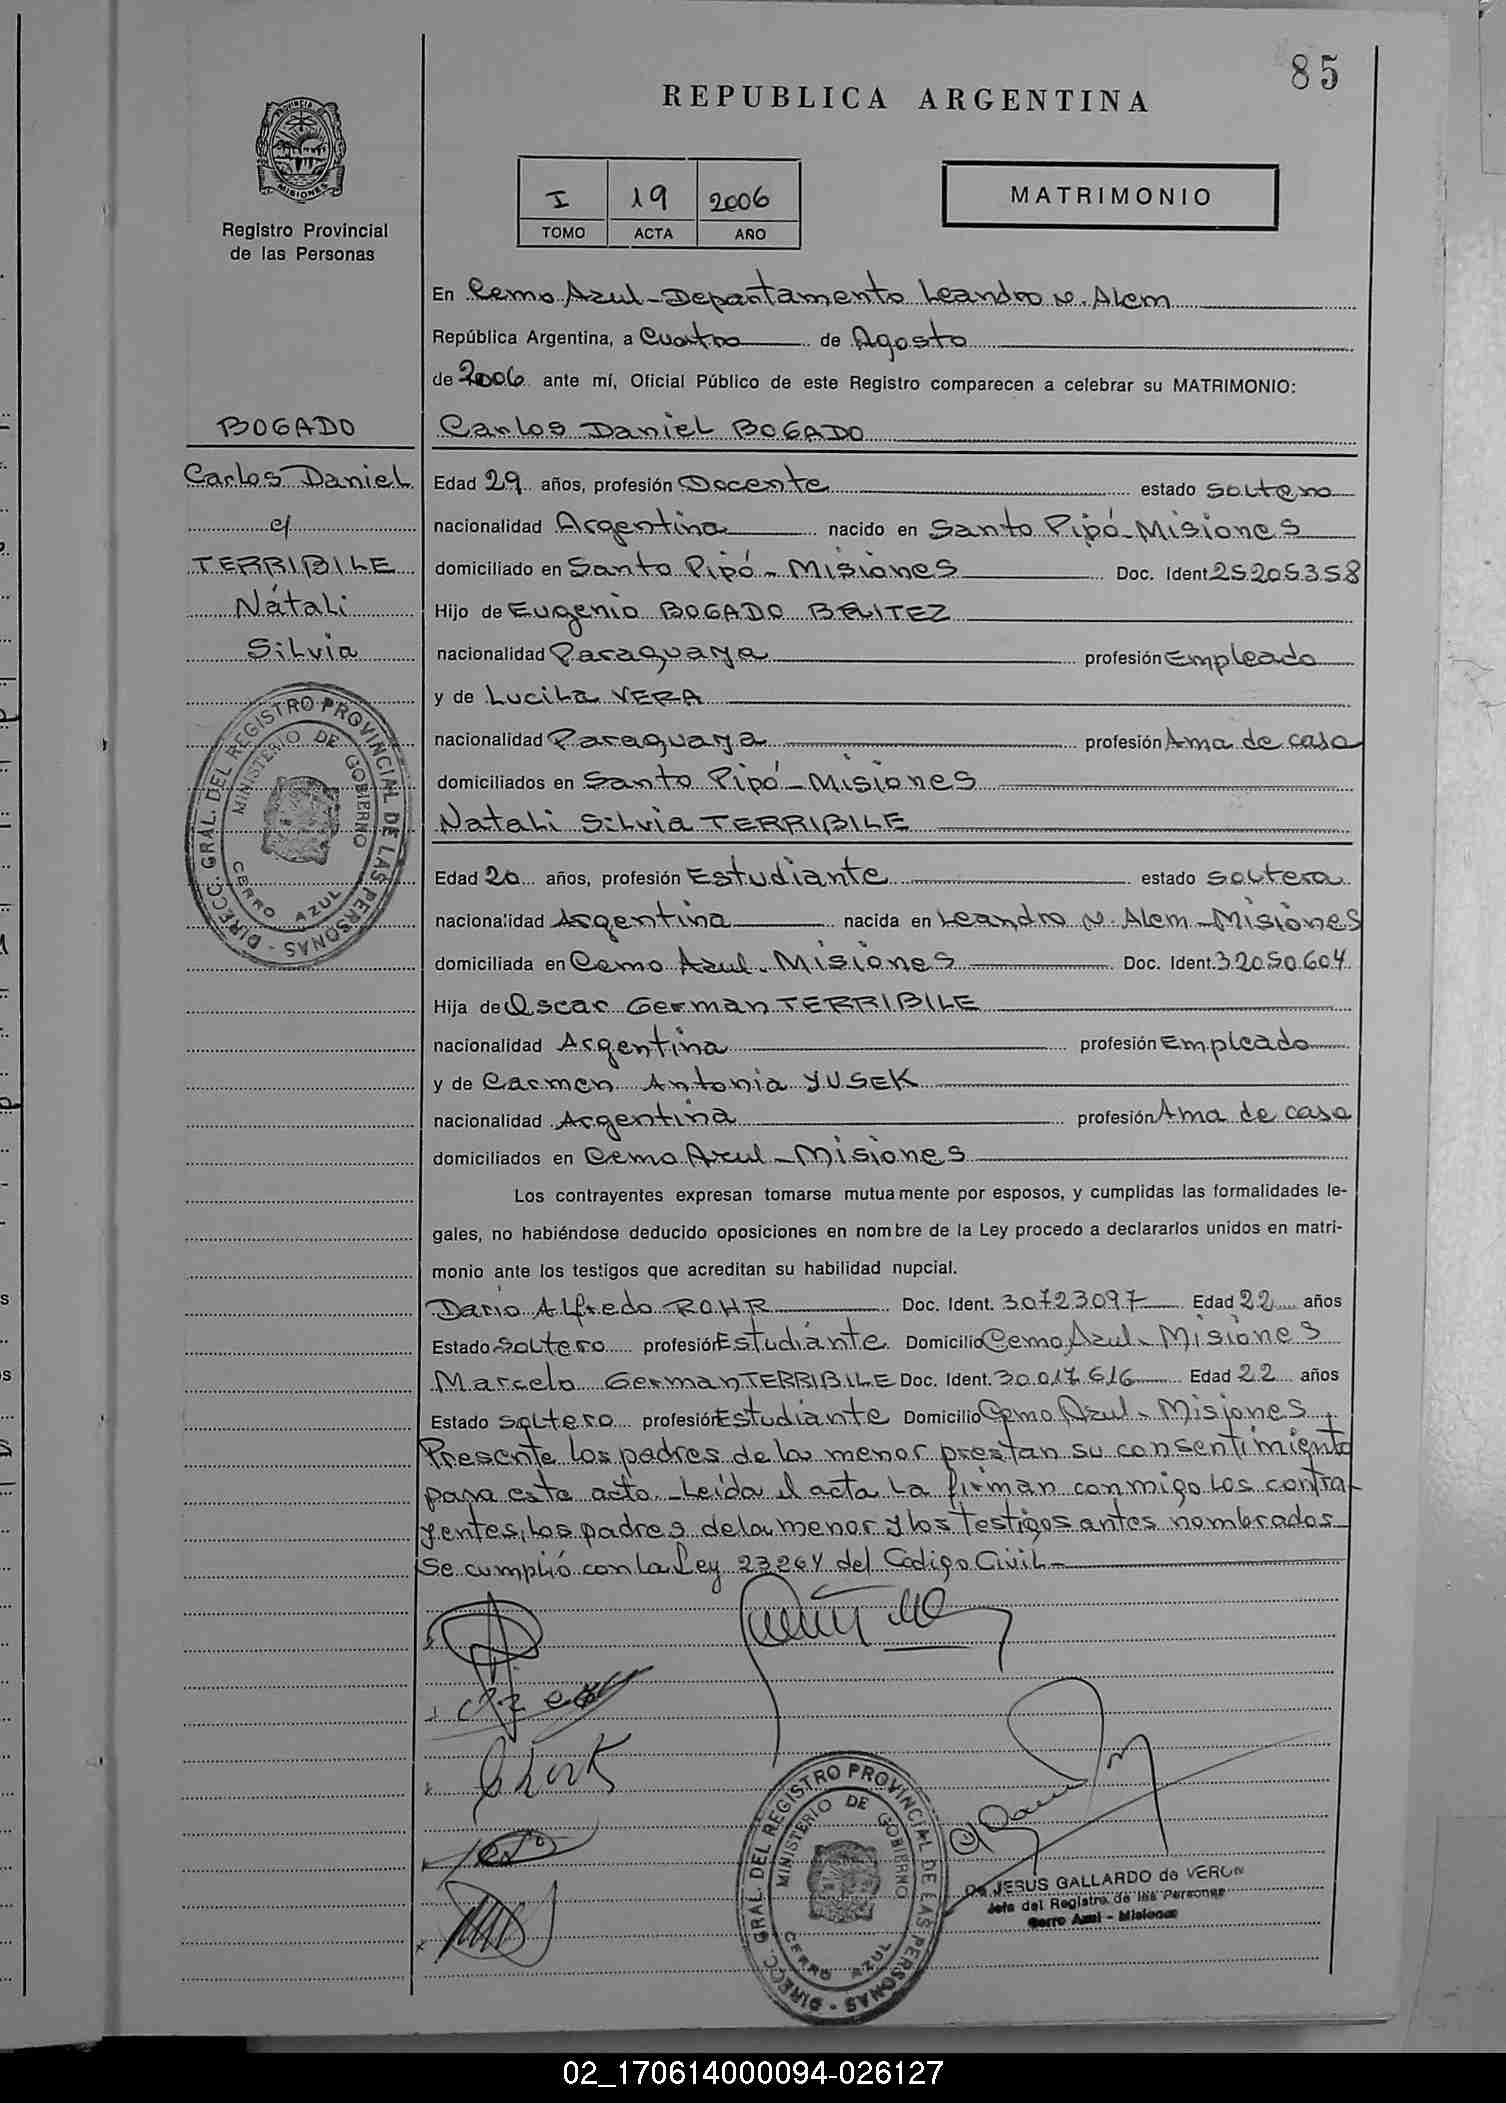 85
REPUBLICA ARGENTINA
PROVINCIA DE
MISIONES
Registro Provincial
de las Personas
I 19 2006
TOMO ACTA AÑO
MATRIMONIO
En Cerro Azul - Departamento Leandro N. Alem
República Argentina, a Cuatro de Agosto
de 2006 ante mí, Oficial Público de este Registro comparecen a celebrar su MATRIMONIO:
BOGADO
Carlos Daniel
c/
TERRIBILE
Nátali
Silvia
Carlos Daniel BOGADO
Edad 29 años, profesión Docente estado soltero
nacionalidad Argentina nacido en Santo Pipó - Misiones
domiciliado en Santo Pipó - Misiones Doc. Ident. 25.205.358
Hijo de Eugenio BOGADO BELITEZ
nacionalidad Paraguaya profesión Empleado
y de Lucila VERA
nacionalidad Paraguaya profesión Ama de casa
domiciliados en Santo Pipó - Misiones
Natali Silvia TERRIBILE
Edad 20 años, profesión Estudiante estado soltera
nacionalidad Argentina nacida en Leandro N. Alem - Misiones
domiciliada en Cerro Azul - Misiones Doc. Ident. 32.050.604
Hija de Oscar German TERRIBILE
nacionalidad Argentina profesión Empleado
y de Carmen Antonia YUSEK
nacionalidad Argentina profesión Ama de casa
domiciliados en Cerro Azul - Misiones
Los contrayentes expresan tomarse mutuamente por esposos, y cumplidas las formalidades le-
gales, no habiéndose deducido oposiciones en nombre de la Ley procedo a declararlos unidos en matri-
monio ante los testigos que acreditan su habilidad nupcial.
Dario Alfredo ROHR Doc. Ident. 30.723.097 Edad 22 años
Estado soltero profesión Estudiante Domicilio Cerro Azul - Misiones
Marcelo German TERRIBILE Doc. Ident. 30.017.616 Edad 22 años
Estado soltero profesión Estudiante Domicilio Cerro Azul - Misiones
Presente los padres de la menor prestan su consentimiento
para este acto. Leída el acta la firman conmigo los contra-
yentes, los padres de la menor y los testigos antes nombrados
Se cumplió con la Ley 23264 del Código Civil
DIRECC. GRAL. DEL REGISTRO PROVINCIAL DE LAS PERSONAS
MINISTERIO DE GOBIERNO
CERRO AZUL
DIRECC. GRAL. DEL REGISTRO PROVINCIAL DE LAS PERSONAS
MINISTERIO DE GOBIERNO
CERRO AZUL
DE JESUS GALLARDO de VERON
Jefe del Registro de las Personas
Cerro Azul - Misiones
02_170614000094-026127